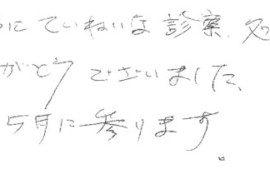 にていねいな診察、処
がとうございました
5月に参ります。